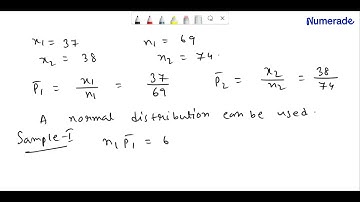 Numerade
x₁ = 37 n₁ = 69
x₂ = 38 n₂ = 74.
p̄₁ = x₁/n₁ = 37/69 p̄₂ = x₂/n₂ = 38/74
A normal distribution can be used.
Sample-I n₁ p̄₁ = 6